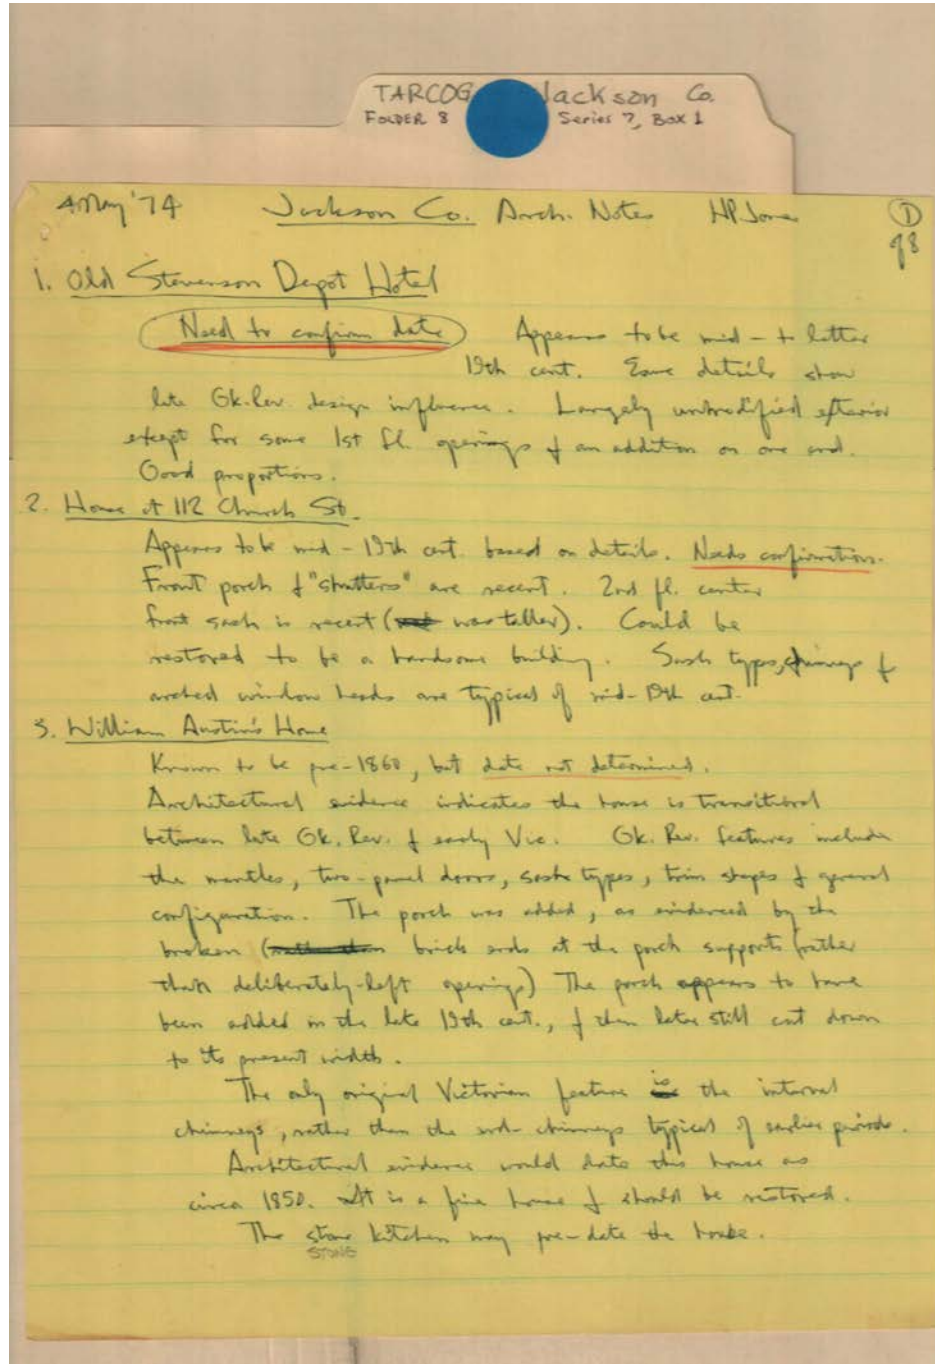 TARCOG Jackson Co.
FOLDER 8 Series 7, Box 1
4 May '74 Jackson Co. Arch. Notes HP Jones 1
of 8
1. Old Stevenson Depot Hotel
Need to confirm date Appears to be mid- to latter
19th cent. Some details show
late Gk. Rev. design influence. Largely unmodified exterior
except for some 1st fl. openings & an addition on one end.
Good proportions.
2. House at 112 Church St.
Appears to be mid-19th cent. based on details. Needs confirmation.
Front porch & "shutters" are recent. 2nd fl. center
front sash is recent (was taller). Could be
restored to be a handsome building. Sash types, chimneys &
arched window heads are typical of mid-19th cent.
3. William Austin's Home
Known to be pre-1860, but date not determined.
Architectural evidence indicates the house is transitional
between late Gk. Rev. & early Vic. Gk. Rev. features include
the mantles, two-panel doors, sash types, trim shapes & general
configuration. The porch was added, as evidenced by the
broken (rather than brick ends at the porch supports (rather
than deliberately-left openings) The porch appears to have
been added in the late 19th cent., & then later still cut down
to its present width.
The only original Victorian feature is the internal
chimneys, rather than the end-chimneys typical of earlier periods.
Architectural evidence would date this house as
circa 1850. It is a fine house & should be restored.
The stone kitchen may pre-date the house.
STONE